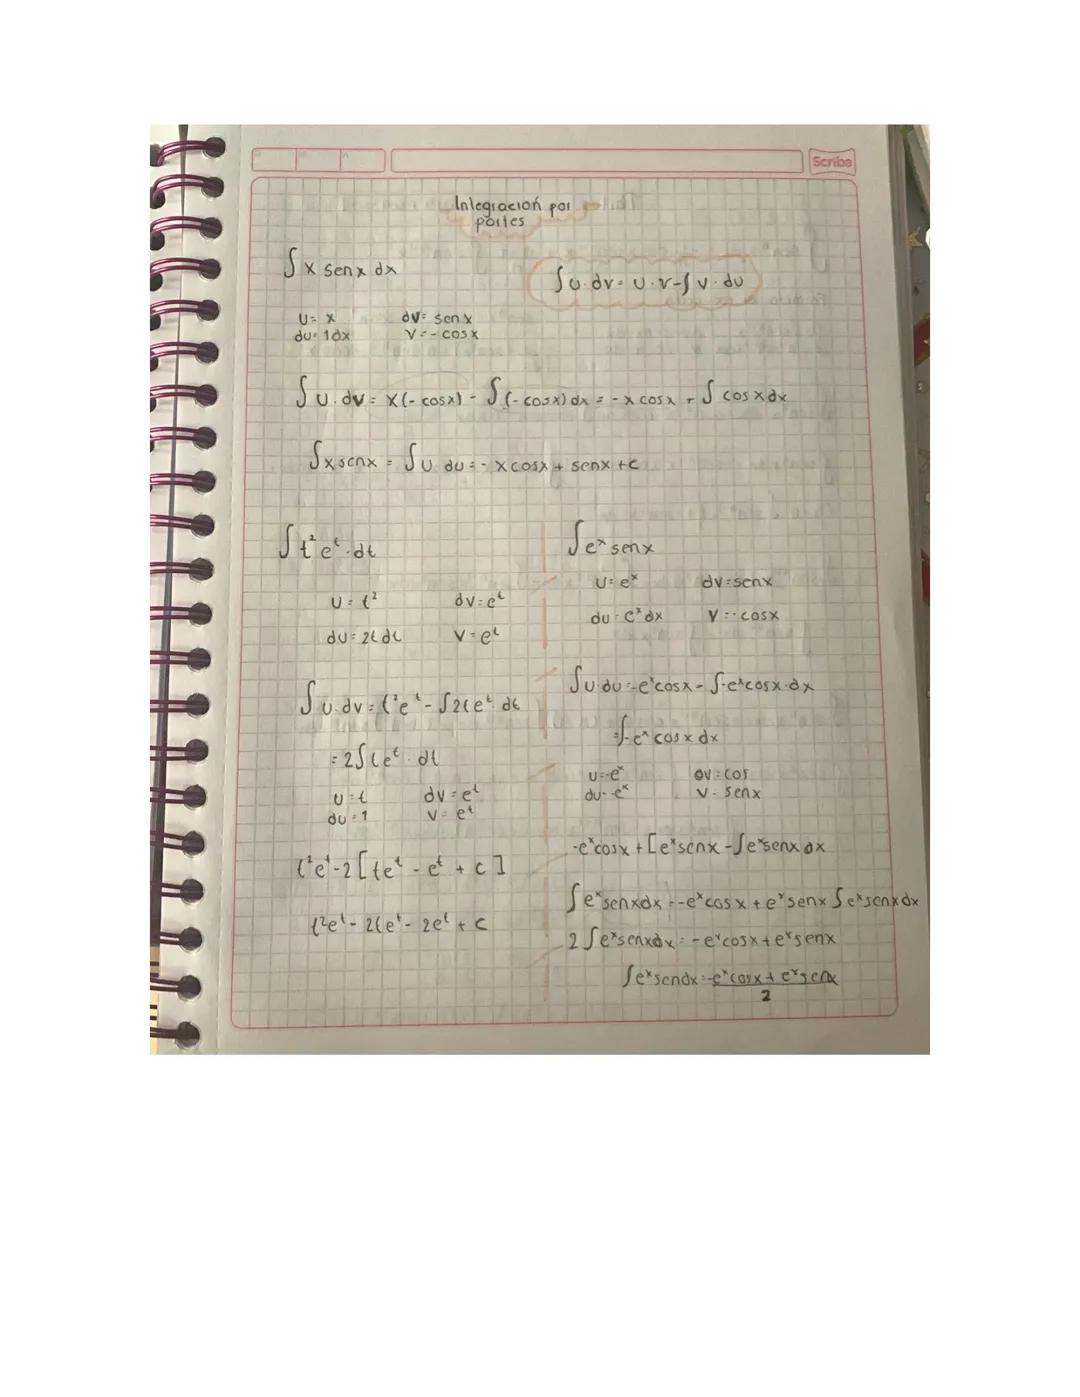 Scribe
Integración por
partes
∫ x senx dx
∫u·dv= u·v-∫v·du
u= x dv= senx
du= 1dx v=-cosx
∫u·dv= x(-cosx) - ∫(-cosx)dx = -x cosx + ∫cosxdx
∫xsenx = ∫u du=- xcosx+ senx +c
∫t²e^t·dt
u= t² dv=e^t
du= 2t dt v=e^t
∫u·dv= t²e^t-∫2te^t dt
= 2∫te^t·dt
u=t dv=e^t
du=1 v=e^t
t²e^t-2[te^t - e^t + c]
t²e^t- 2te^t- 2e^t + c
∫e^x senx
u=e^x dv=senx
du=e^x dx v=-cosx
∫u·du=-e^x cosx-∫-e^x cosx·dx
=∫-e^x cosx dx
u=-e^x dv=cos
du=-e^x v= senx
-e^x cosx+[e^x senx-∫e^x senx dx
∫e^x senxdx=-e^x cosx+e^x senx ∫e^x senxdx
2∫e^x senxdx=-e^x cosx+e^x senx
∫e^x sendx=-e^x cosx+ e^x senx
2